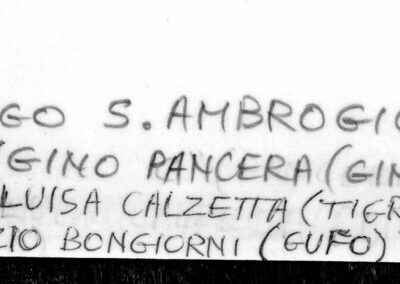 GO S. AMBROGIO
GINO PANCERA (GIN
LUISA CALZETTA (TIGR
ZIO BONGIORNI (GUFO)